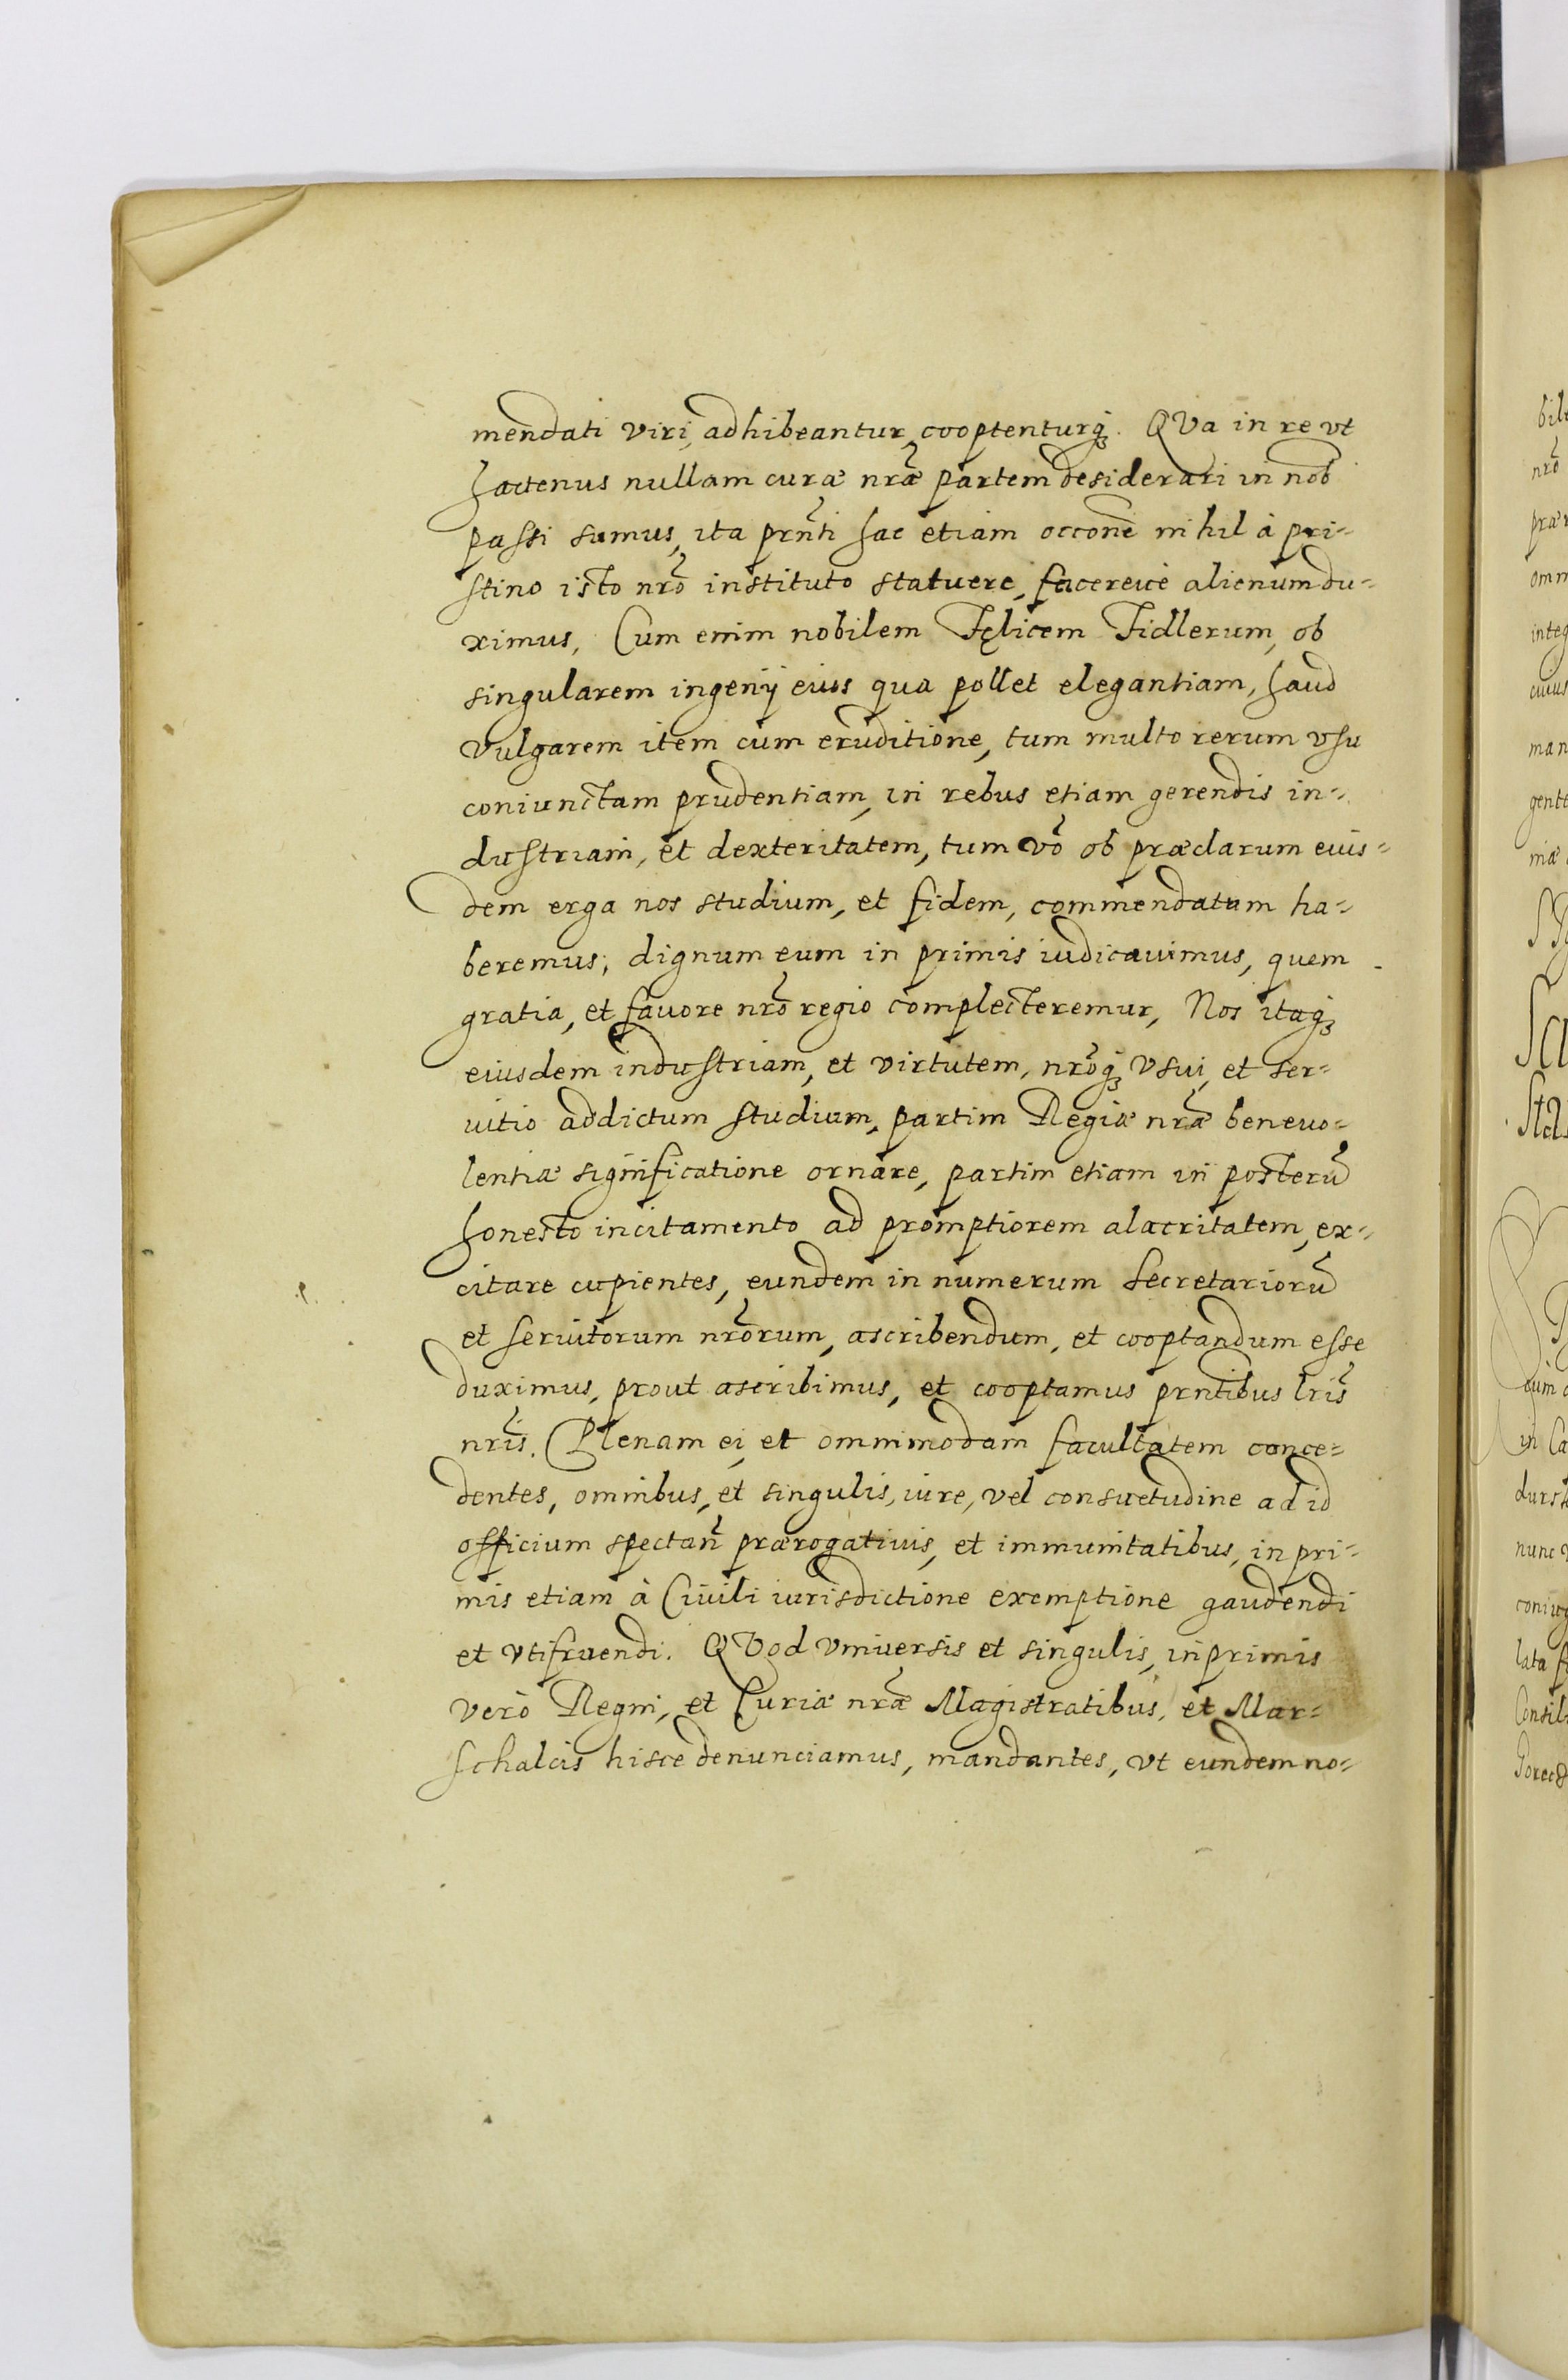 mendati viri, adhibeantur, cooptenturq́ꝫ. QVa in re vt
hactenus nullam curæ nr̃æ partem desiderari in nob̃
passi sumus, ita prñti hac etiam occone᷉ nihil à pri-
stino isto nr̃o instituto statuere, facereue alienum du-
ximus, Cum enim nobilem Fęlicem Fidlerum, ob
singularem ingenij eius qua pollet elegantiam, haud
vulgarem item cum eruditione, tum multo rerum vsu
coniunctam prudentiam, in rebus etiam gerendis in-
dustriam, et dexteritatem, tum vo᷉ ob præclarum eius-
dem erga nos studium, et fidem, commendatum ha-
beremus; dignum eum in primis iudicauimus, quem
gratia, et fauore nr̃o regio complecteremur, Nos itaqꝫ
eiusdem industriam, et virtutem, nr̃oq́ꝫ vsui, et ser-
uitio addictum studium, partim Regiæ nr̃æ beneuo-
lentiæ significatione ornare, partim etiam in posterũ
honesto incitamento ad promptiorem alacritatem, ex-
citare cupientes, eundem in numerum Secretariorũ
et seruitorum nr̃orum, ascribendum, et cooptandum esse
duximus, prout ascribimus, et cooptamus prñtibus lr̃is
nr̃is. Plenam ei, et omnimodam facultatem conce-
dentes, omnibus, et singulis, iure, vel consuetudine ad id
officium spectañ prærogatiuis, et immunitatibus, in pri-
mis etiam à Ciuili iurisdictione exemptione gaudendi
et vtifruendi. QVod vniuersis et singulis, inprimis
verò Regni, et Curiæ nr̃æ Magistratibus, et Mar-
schalcis hisce denunciamus, mandantes, vt eundem no-